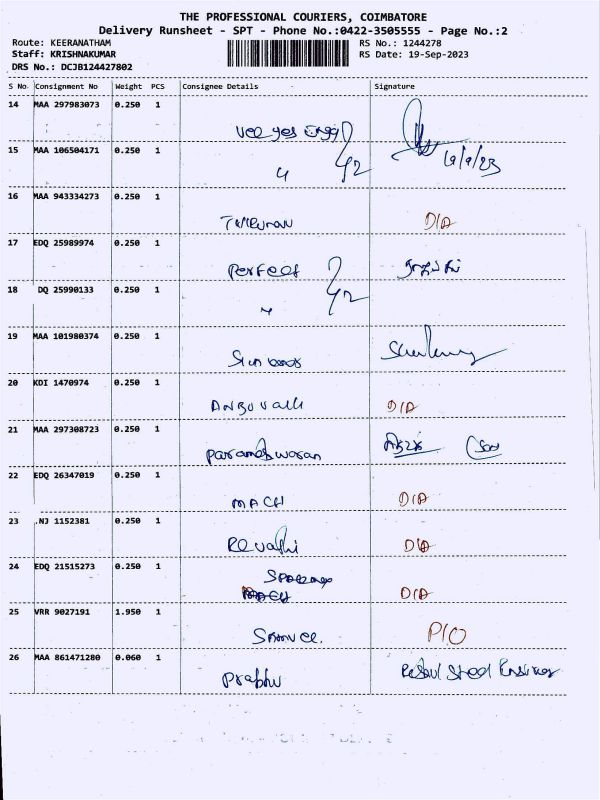 THE PROFESSIONAL COURIERS, COIMBATORE
Delivery Runsheet - SPT - Phone No.:0422-3505555 - Page No.:2
Route: KEERANATHAM RS No.: 1244278
Staff: KRISHNAKUMAR RS Date: 19-Sep-2023
DRS No.: DCJB124427802
S No Consignment No Weight PCS Consignee Details Signature
14 MAA 297983073 0.250 1
Vee yes Engg
15 MAA 106504171 0.250 1 19/9/23
16 MAA 943334273 0.250 1
D/A
17 EDQ 25989974 0.250 1
Perfect
18 DQ 25990133 0.250 1
19 MAA 101980374 0.250 1
20 KDI 1470974 0.250 1
D/A
21 MAA 297308723 0.250 1
Parameshwaran (Son
22 EDQ 26347019 0.250 1
MACH D/A
23 .NJ 1152381 0.250 1
Revathi D/A
24 EDQ 21515273 0.250 1
D/A
25 VRR 9027191 1.950 1
P/O
26 MAA 861471280 0.060 1
Prabhu Steel